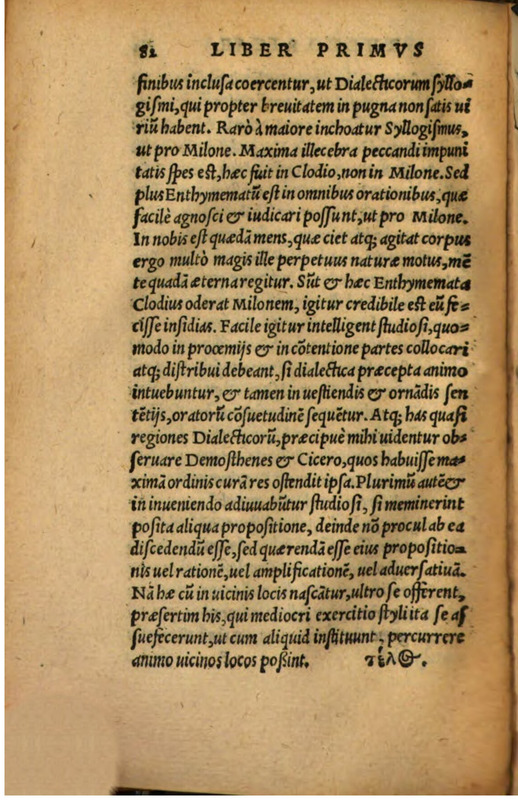 82 LIBER PRIMVS
finibus inclusa coercentur, ut Dialecticorum syllo-
gismi, qui propter brevitatem in pugna non satis ui
riũ habent. Rarò à maiore inchoatur Syllogismus,
ut pro Milone. Maxima illecebra peccandi impuni
tatis spes est, hæc fuit in Clodio, non in Milone. Sed
plus Enthymematũ est in omnibus orationibus, quæ
facilè agnosci & iudicari possunt, ut pro Milone.
In nobis est quædã mens, quæ ciet atq; agitat corpus
ergo multò magis ille perpetuus naturæ motus, mẽ
te quadã æterna regitur. Sũt & hæc Enthymemata
Clodius oderat Milonem, igitur credibile est eũ fe-
cisse insidias. Facile igitur intelligent studiosi, quo-
modo in proœmijs & in cõtentione partes collocari
atq; distribui debeant, si dialectica præcepta animo
intuebuntur, & tamen in uestiendis & ornãdis sen
tẽtijs, oratorũ cõsuetudinẽ sequẽtur. Atq; has quasi
regiones Dialecticorũ, præcipuè mihi uidentur ob-
seruare Demosthenes & Cicero, quos habuisse ma-
ximã ordinis curã res ostendit ipsa. Plurimũ autẽ &
in inueniendo adiuuabũtur studiosi, si meminerint
posita aliqua propositione, deinde nõ procul ab ea
discedendũ esse, sed quærendã esse eius propositio-
nis uel rationẽ, uel amplificationẽ, uel aduersatiuã.
Nã hæ cũ in uicinis locis nascãtur, ultro se offerent,
præsertim his, qui mediocri exercitio styli ita se as
suefecerunt, ut cum aliquid instituunt, percurrere
animo uicinos locos possint. τέλος.